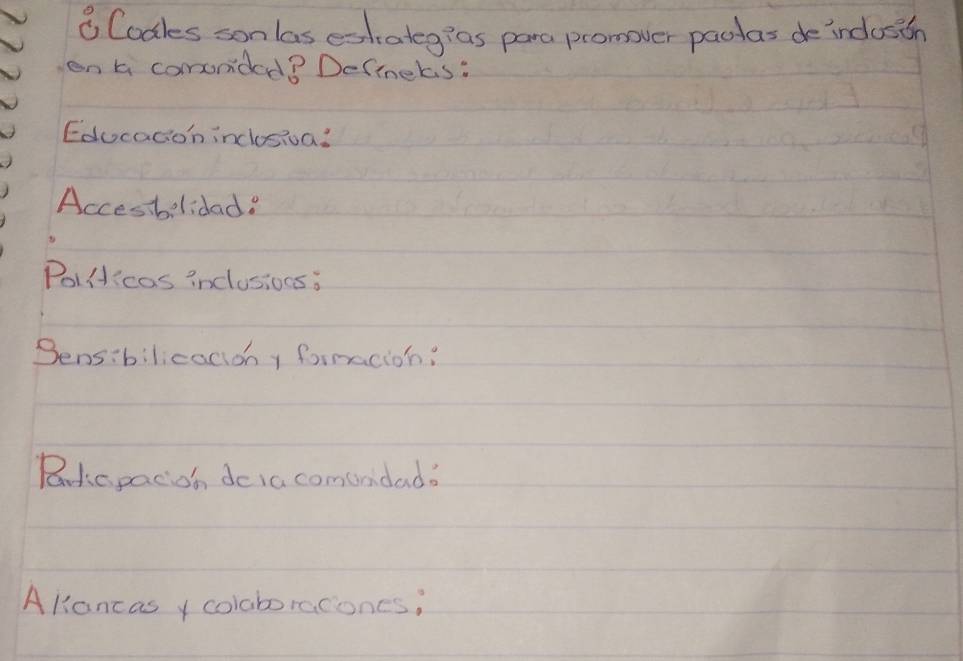 ¿Cuáles son las estrategias para promover pautas de inclusión
en la comunidad? Definelas:
Educación inclusiva:
Accesibilidad:
Políticas inclusivas:
Sensibilicación y formación:
Participación de la comunidad:
Aliancas y colaboraciones: